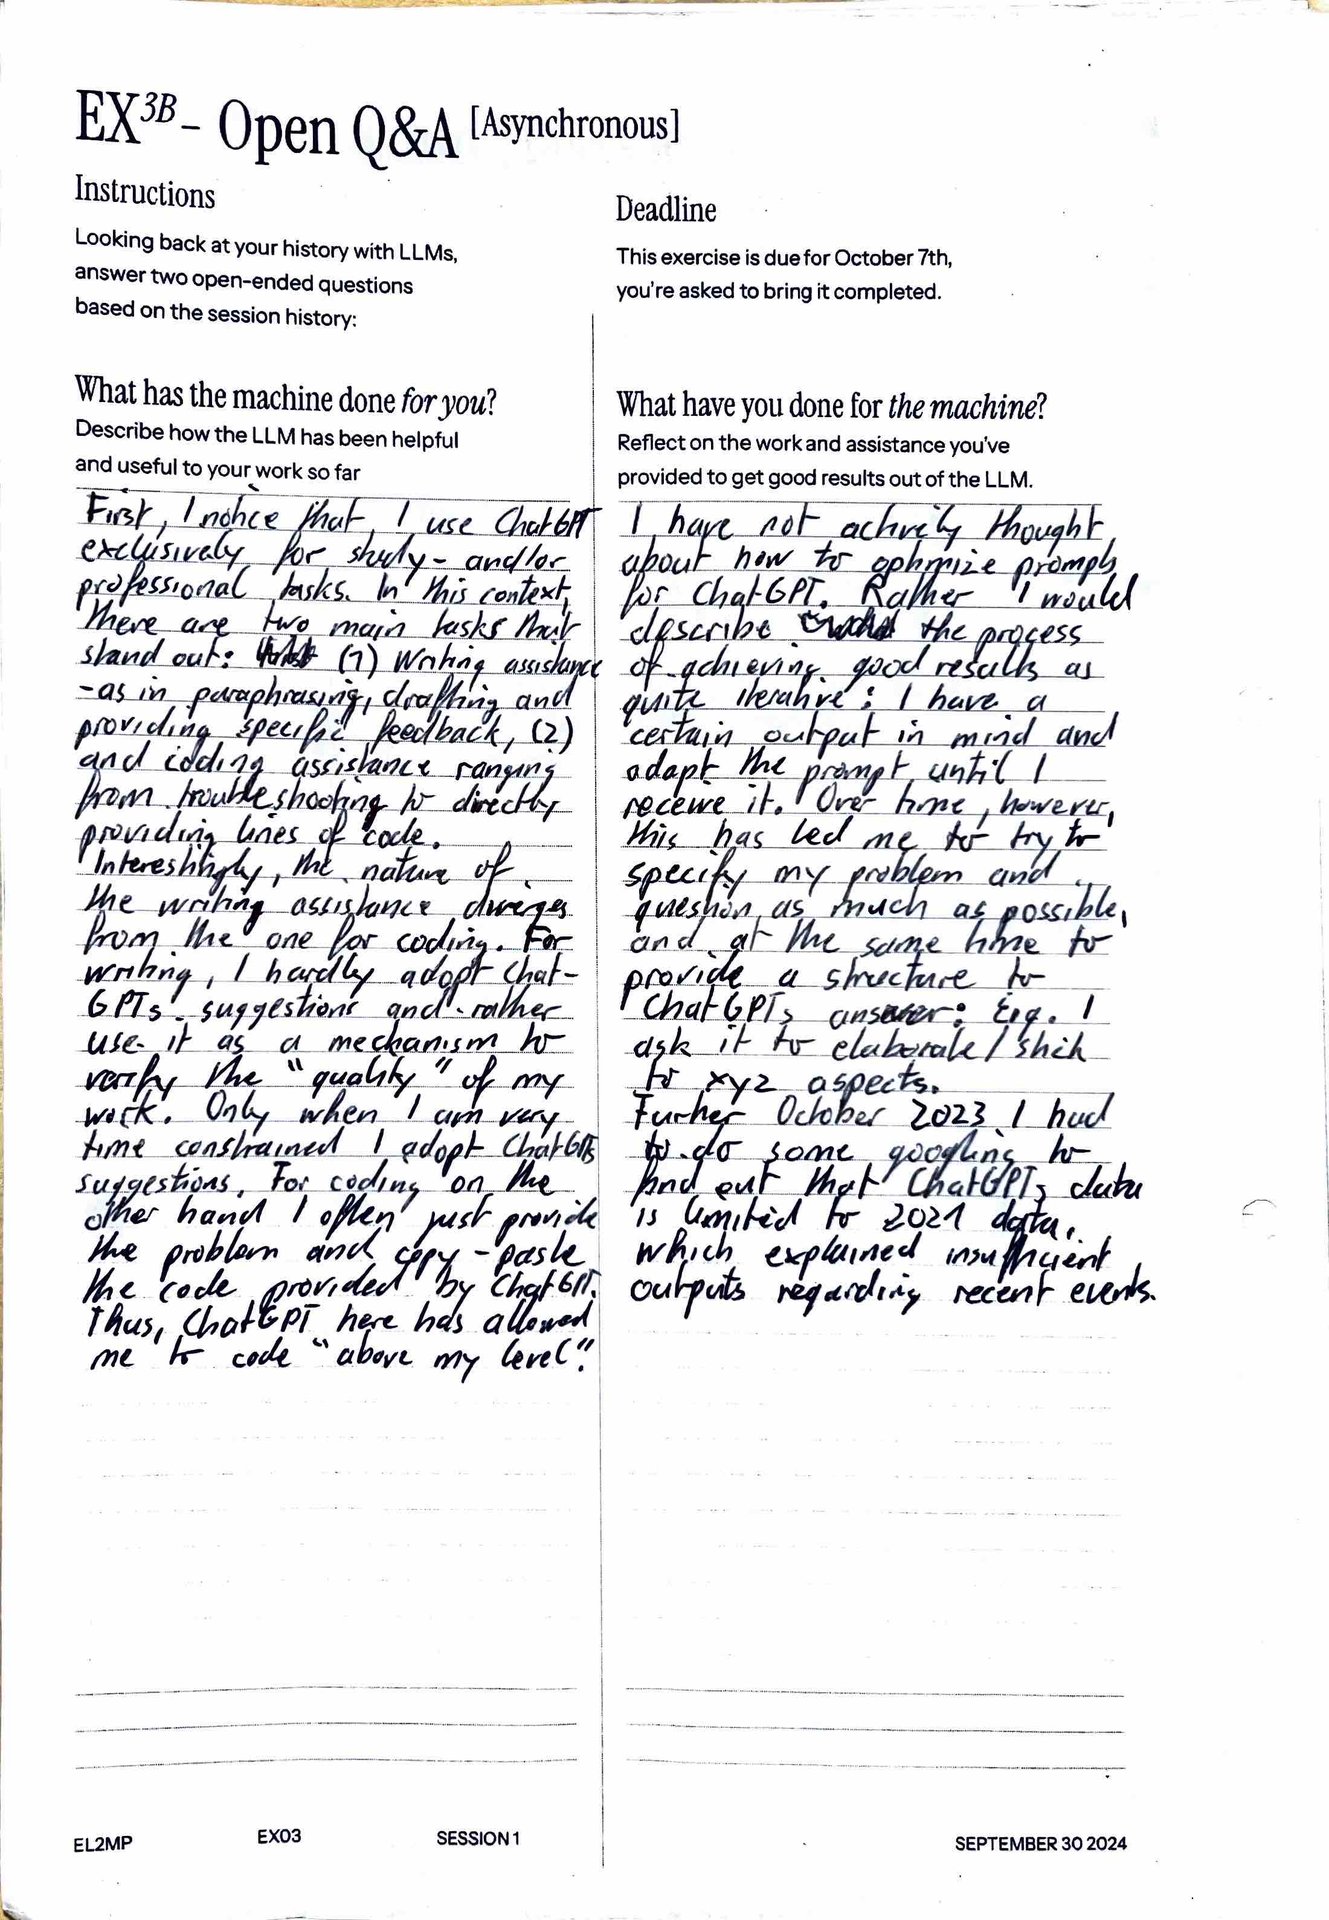 EX3B - Open Q&A [Asynchronous]
Instructions
Looking back at your history with LLMs,
answer two open-ended questions
based on the session history:
Deadline
This exercise is due for October 7th,
you're asked to bring it completed.
What has the machine done for you?
Describe how the LLM has been helpful
and useful to your work so far
First, I notice that I use ChatGPT
exclusively for study- and/or
professional tasks. In this context,
there are two main tasks that
stand out: (1) Writing assistance
-as in paraphrasing, drafting and
providing specific feedback, (2)
and coding assistance ranging
from troubleshooting to directly
providing lines of code.
Interestingly, the nature of
the writing assistance diverges
from the one for coding. For
writing, I hardly adopt Chat-
GPTs suggestions and rather
use it as a mechanism to
verify the "quality" of my
work. Only when I am very
time constrained I adopt ChatGPTs
suggestions. For coding on the
other hand I often just provide
the problem and copy-paste
the code provided by ChatGPT.
Thus, ChatGPT here has allowed
me to code "above my level".
What have you done for the machine?
Reflect on the work and assistance you've
provided to get good results out of the LLM.
I have not actively thought
about how to optimize prompts
for ChatGPT. Rather I would
describe the process
of achieving good results as
quite iterative: I have a
certain output in mind and
adapt the prompt until I
receive it. Over time, however,
this has led me to try to
specify my problem and
question as much as possible,
and at the same time to
provide a structure to
ChatGPTs answer: E.g. I
ask it to elaborate/stick
to xyz aspects.
Further October 2023 I had
to do some googling to
find out that ChatGPTs data
is limited to 2021 data,
which explained insufficient
outputs regarding recent events.
EL2MP
EX03
SESSION 1
SEPTEMBER 30 2024